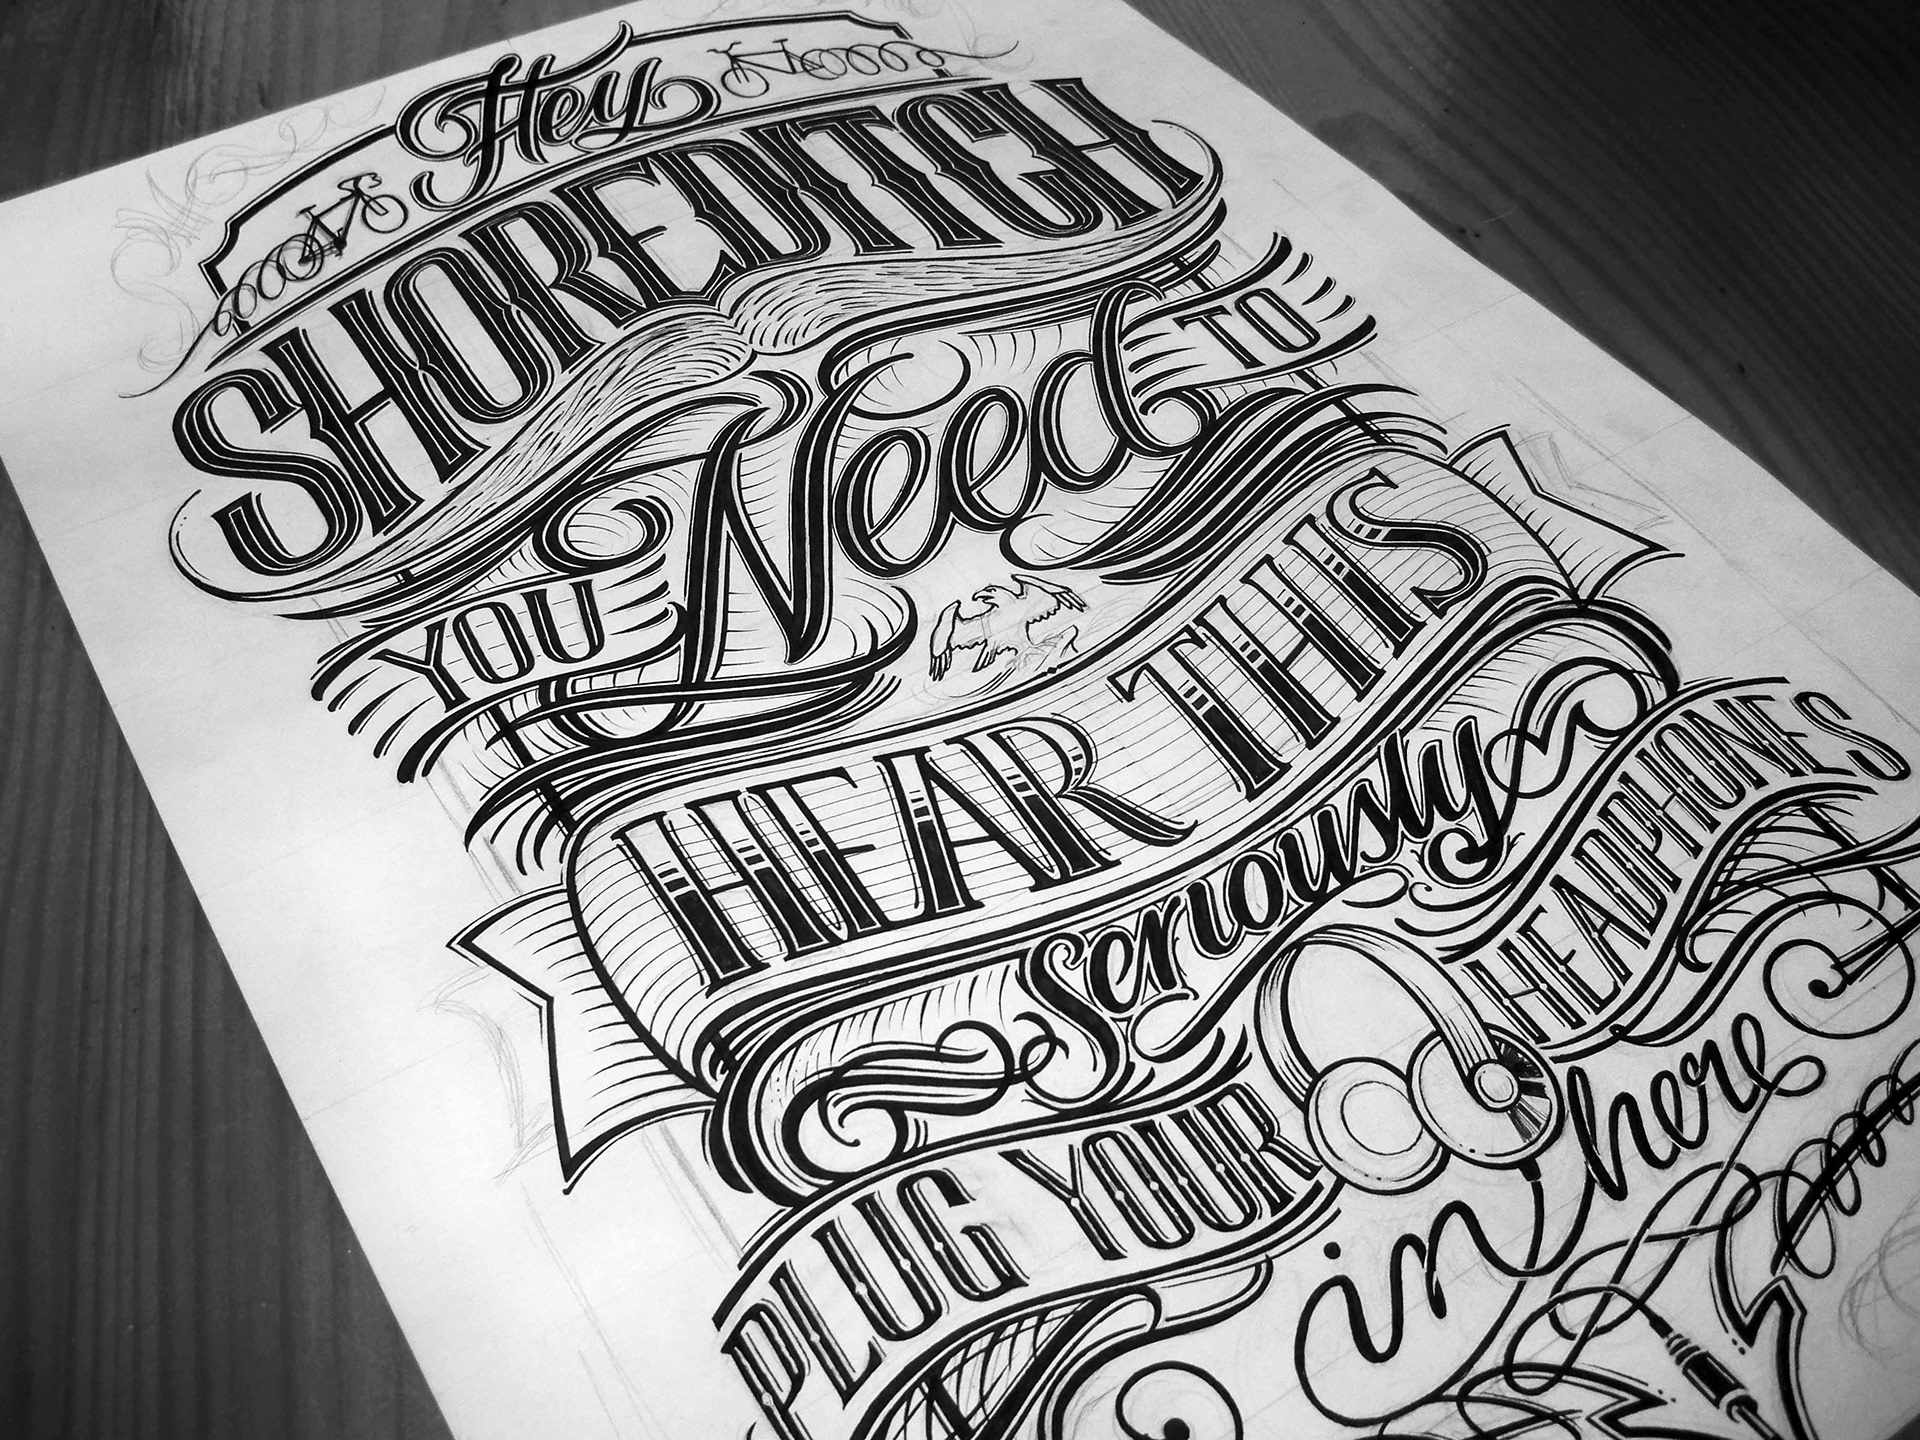 Hey
SHOREDITCH
YOU Need TO
HEAR THIS
Seriously
PLUG YOUR HEADPHONES
in here